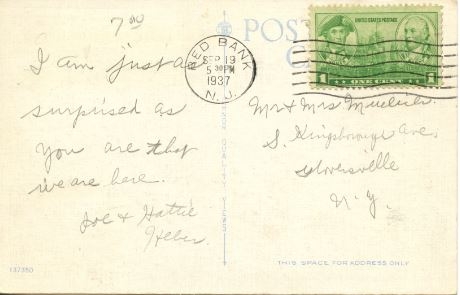 7 00
I am just as
surprised as
you are that
we are here.
Joe & Hattie
Heber.
POST
C
RED BANK
SEP 19
5 30 PM
1937
N. J.
UNITED STATES POSTAGE
1 ONE CENT 1
Mr & Mrs
S. Kingsborough Ave.
Gloversville
N.Y.
QUALITY VIEWS
THIS SPACE FOR ADDRESS ONLY
137350